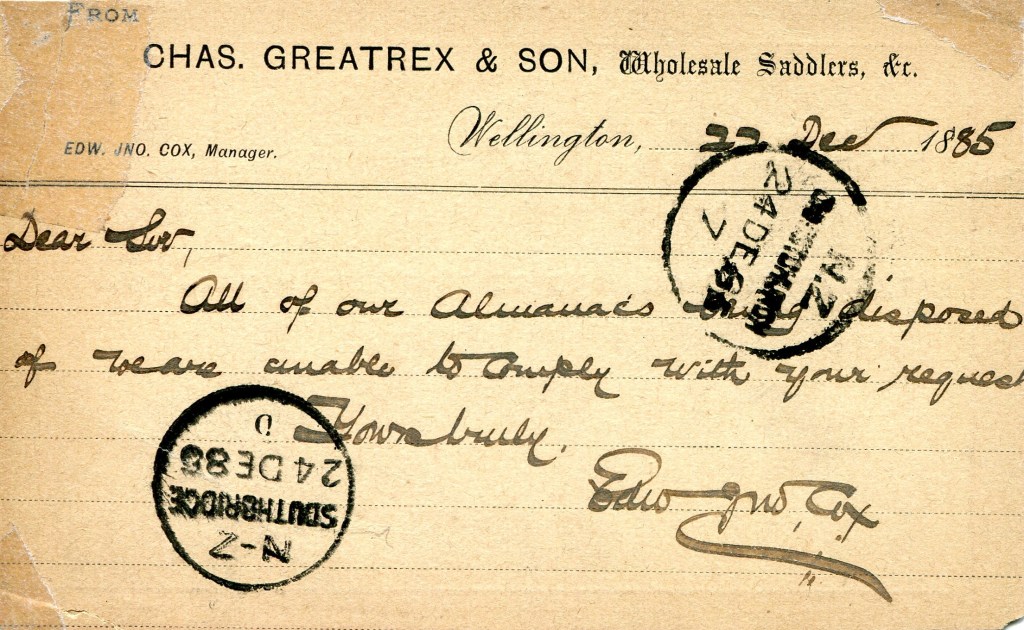 FROM
CHAS. GREATREX & SON, Wholesale Saddlers, &c.
Wellington, 22 Dec 1885
EDW. JNO. COX, Manager.
Dear Sir,
All of our Almanacs being disposed
of we are unable to comply with your request
Yours truly,
Edw Jno, Cox
N.Z
24 DE 85
7
N-Z
SOUTHBRIDGE
24 DE 85